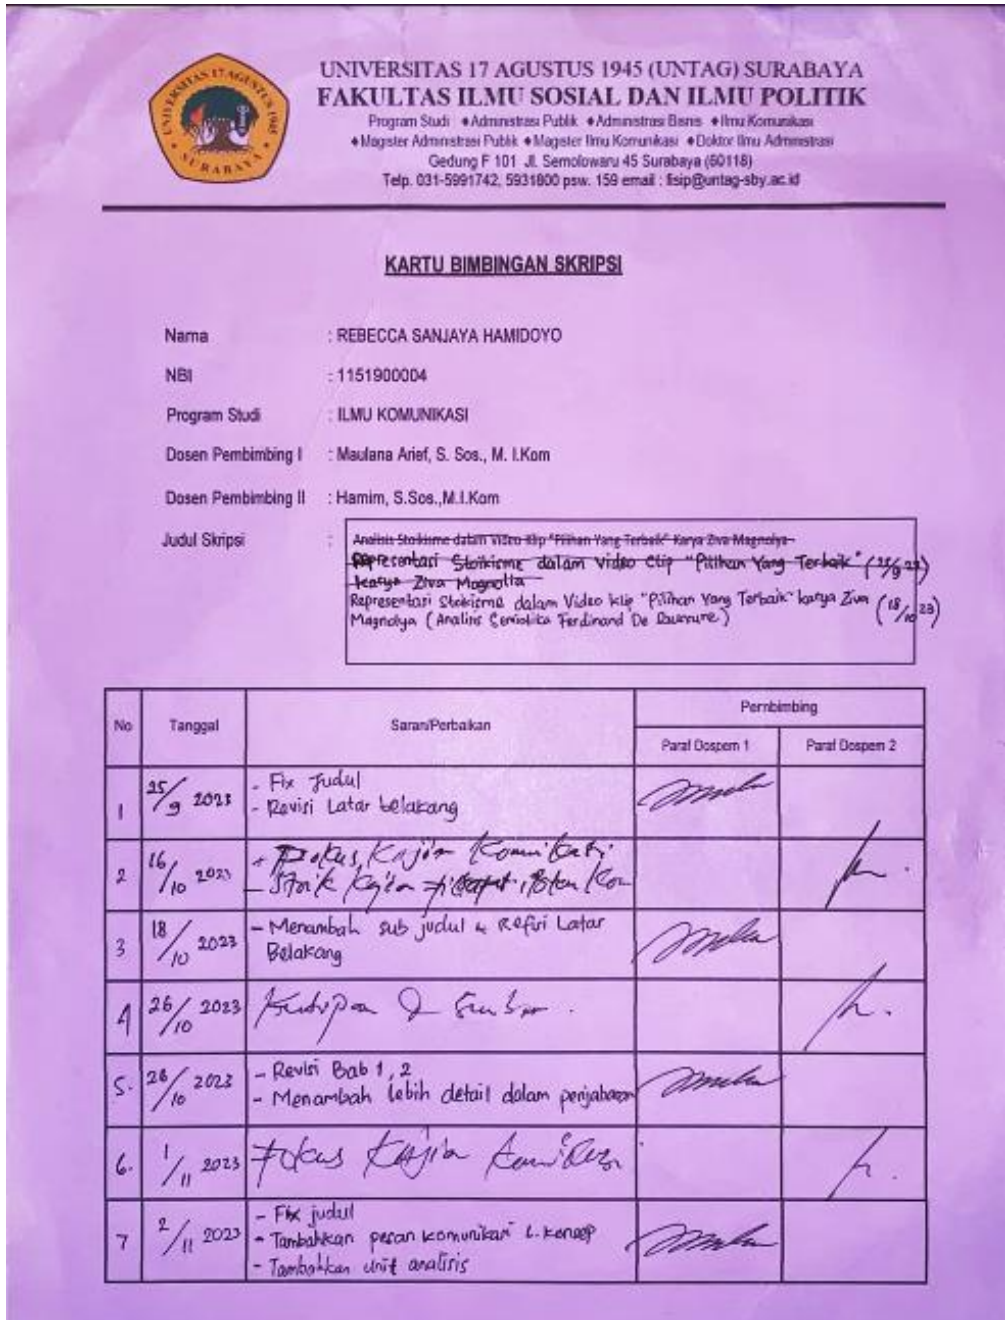 UNIVERSITAS 17 AGUSTUS 1945
SURABAYA
UNIVERSITAS 17 AGUSTUS 1945 (UNTAG) SURABAYA
FAKULTAS ILMU SOSIAL DAN ILMU POLITIK
Program Studi ♦Administrasi Publik ♦Administrasi Bisnis ♦Ilmu Komunikasi
♦Magister Administrasi Publik ♦Magister Ilmu Komunikasi ♦Doktor Ilmu Administrasi
Gedung F 101 Jl. Semolowaru 45 Surabaya (60118)
Telp. 031-5991742, 5931800 psw. 159 email : fisip@untag-sby.ac.id
KARTU BIMBINGAN SKRIPSI
Nama : REBECCA SANJAYA HAMIDOYO
NBI : 1151900004
Program Studi : ILMU KOMUNIKASI
Dosen Pembimbing I : Maulana Arief, S. Sos., M. I.Kom
Dosen Pembimbing II : Hamim, S.Sos.,M.I.Kom
Judul Skripsi :
Analisis Stoikisme dalam Video Klip "Pilihan Yang Terbaik" Karya Ziva Magnolya
Representasi Stoikisme dalam Video Clip "Pilihan Yang Terbaik" (25/9 23)
karya Ziva Magnolia
Representasi Stoikisme dalam Video Klip "Pilihan Yang Terbaik" karya Ziva (18/10 23)
Magnolya (Analisis Semiotika Ferdinand De Saussure)
No Tanggal Saran/Perbaikan Pembimbing
Paraf Dospem 1 Paraf Dospem 2
1 25/9 2023 - Fix Judul
- Revisi Latar belakang
2 16/10 2023 - Fokus Kajian Komunikasi
- Stoik Kajian
3 18/10 2023 - Menambah sub judul & Refisi Latar
Belakang
4 26/10 2023 Kutipan
5. 28/10 2023 - Revisi Bab 1, 2
- Menambah lebih detail dalam penjabaran
6. 1/11 2023 Fokus Kajian Komunikasi
7 2/11 2023 - Fix judul
- Tambahkan pesan komunikasi L. konsep
- Tambahkan unit analisis